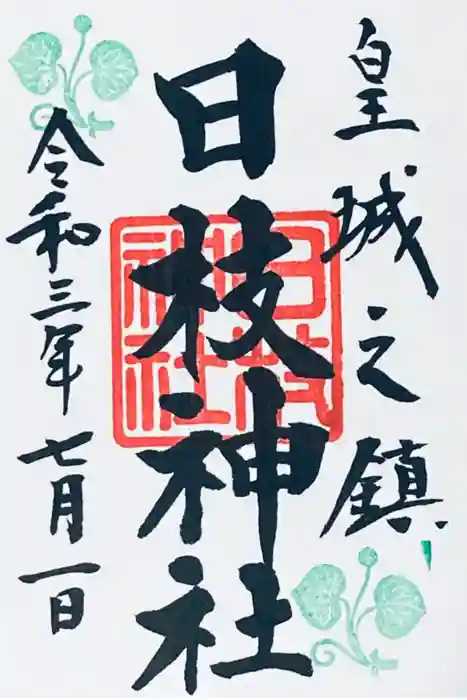 皇城之鎮
日枝神社
令和三年七月一日
日枝神社